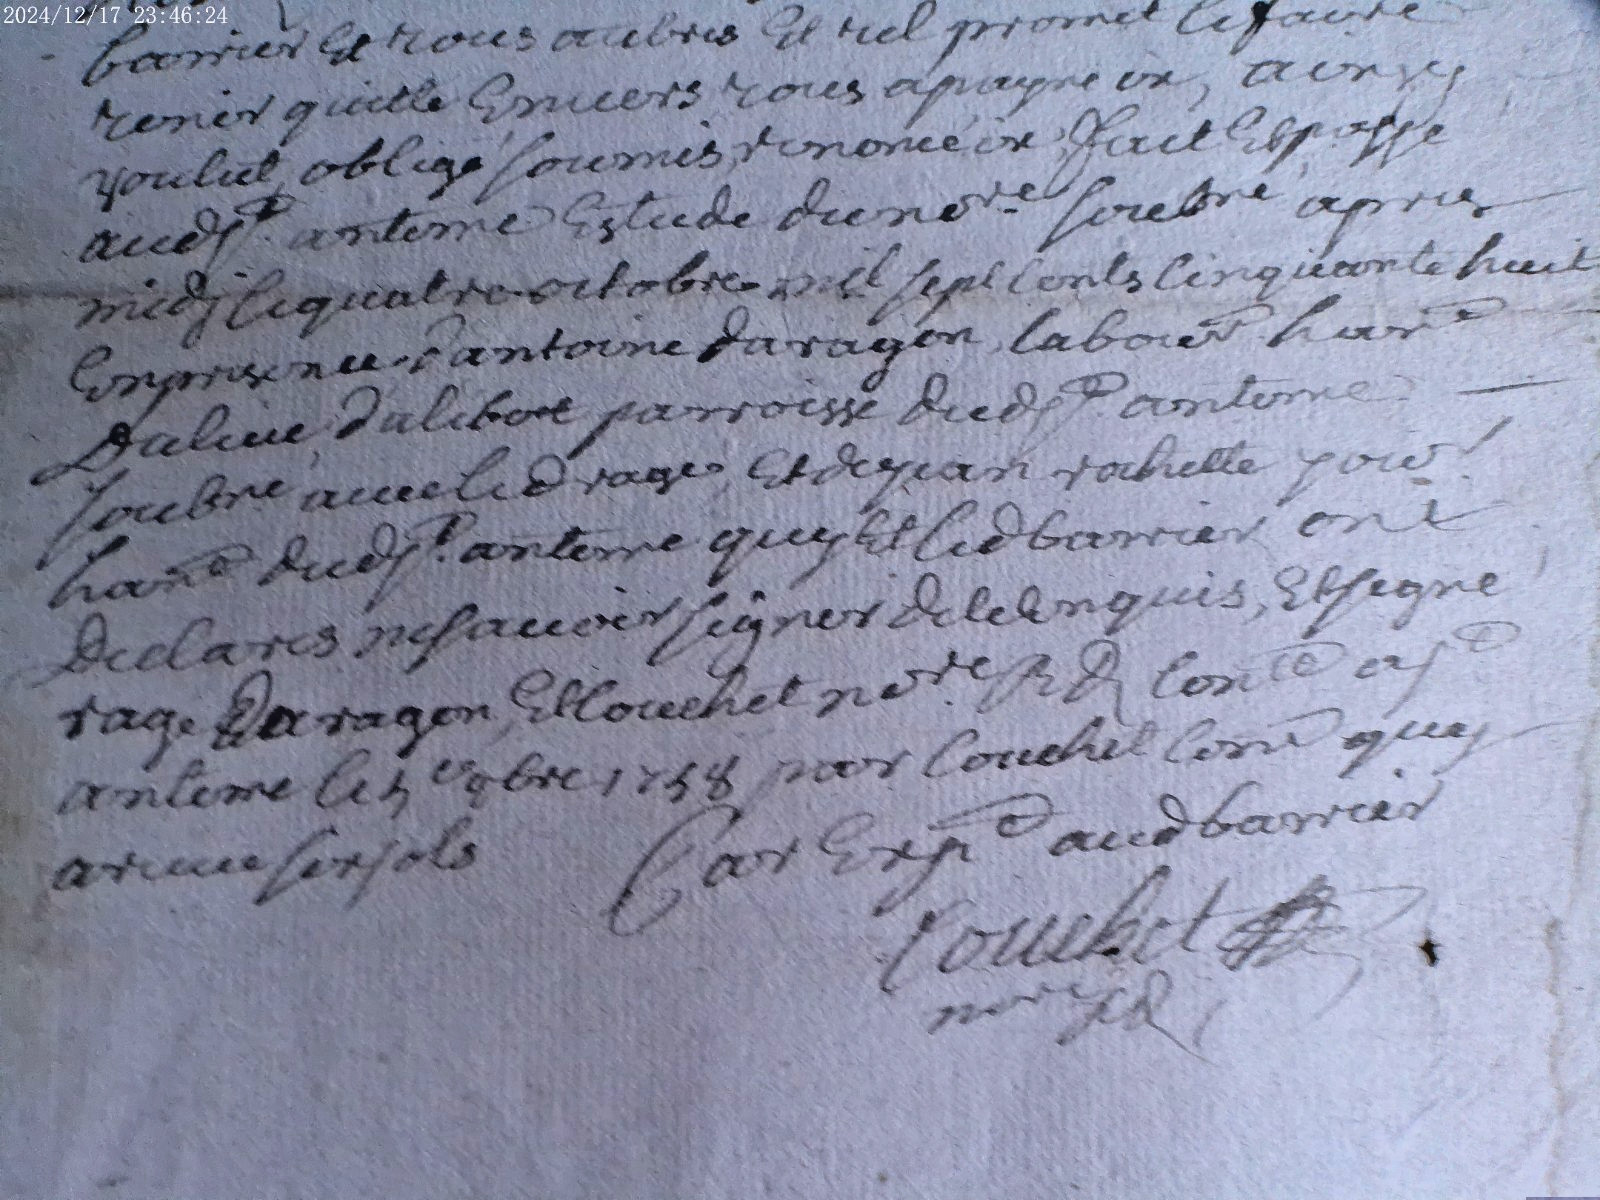 2024/12/17 23:46:24
barrier Et tous autres Et tel promet le faire
tenir quitte Envers tous apayne ix, ainsy
voulut, oblige soumis, renonce ix, fait Et passe
aud st antoine Estude du nore soubne apres
midy le quatre octobre mil sept cents cinquante huit
En presence d'antoine daragon, labour hant
parroisse dud st antoine
soubne avec led rage, Et de jean rochette
hant dud st antoine quy Et led barrier ont
declares ne savoir signer de ce Enquis, Et signe
rage Daragon, Et Couchet nore Rd conte a st
antoine le 5 8bre 1758 par Couchet Come quy
a receu six sols Par Expn aud barrier
Couchet
nore Rd